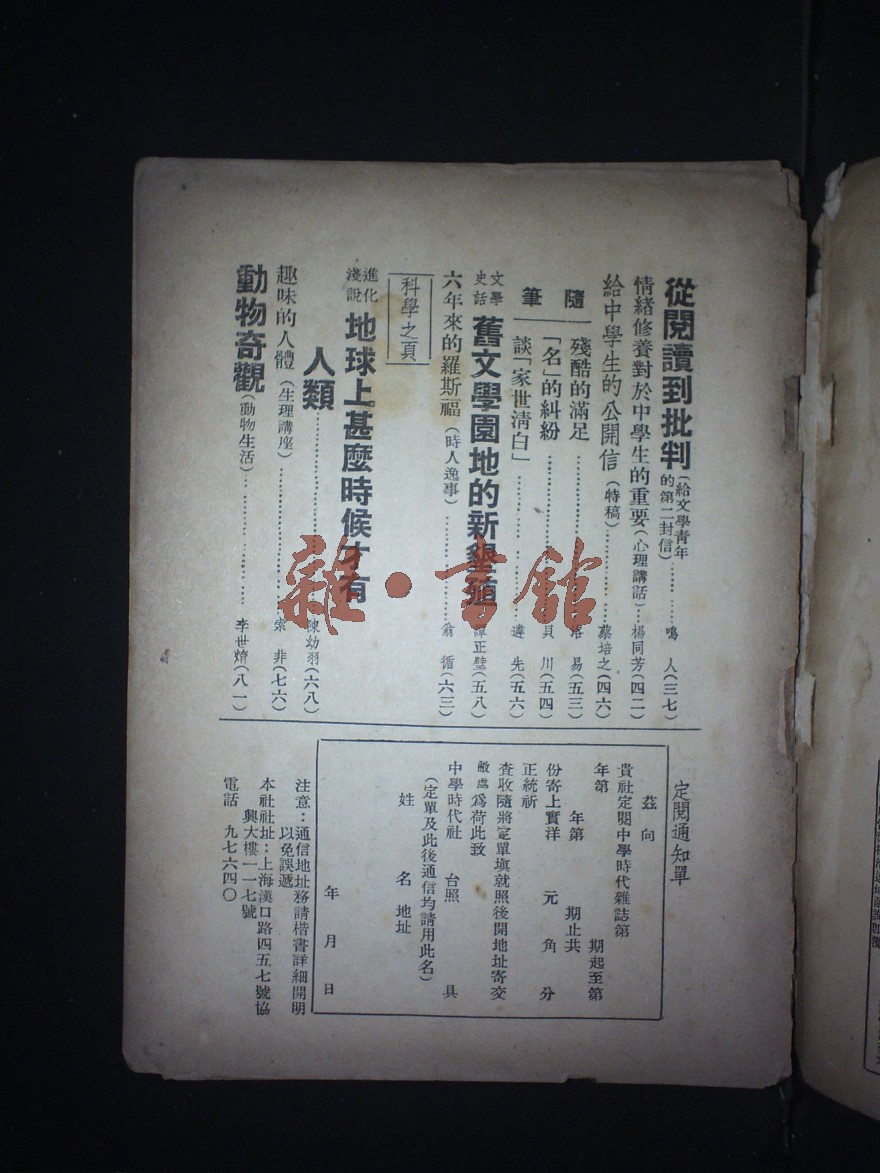 從閱讀到批判（給文學青年的第二封信）……… 鳴 人（三七）
情緒修養對於中學生的重要（心理講話）… 楊同芳（四二）
給中學生的公開信（特稿）……… 蔡培之（四六）
隨筆
殘酷的滿足……… 洛 易（五三）
「名」的糾紛……… 貝 川（五四）
談「家世淸白」……… 遴 先（五六）
文學史話 舊文學園地的新墾殖 譚正璧（五八）
六年來的羅斯福（時人逸事）……… 翁 循（六三）
科學之頁
進化淺說 地球上甚麼時候才有
人類……… 陳幼翁（六八）
趣味的人體（生理講座）……… 索 非（七六）
動物奇觀（動物生活）……… 李世（八一）
定閱通知單
茲 向
貴社定閱中學時代雜誌第
年第 期起至第
年第 期止共
份寄上實洋 元 角 分
正統祈
查收隨將定單塡就照後開地址寄交
敝處爲荷此致
中學時代社 台照 具
（定單及此後通信均請用此名）
姓 名 地址
年 月 日
注意：通信地址務請楷書詳細開明
以免誤遞
本社社址：上海漢口路四五七號協
興大樓一一七號
電話 九七六四〇
雜·書館